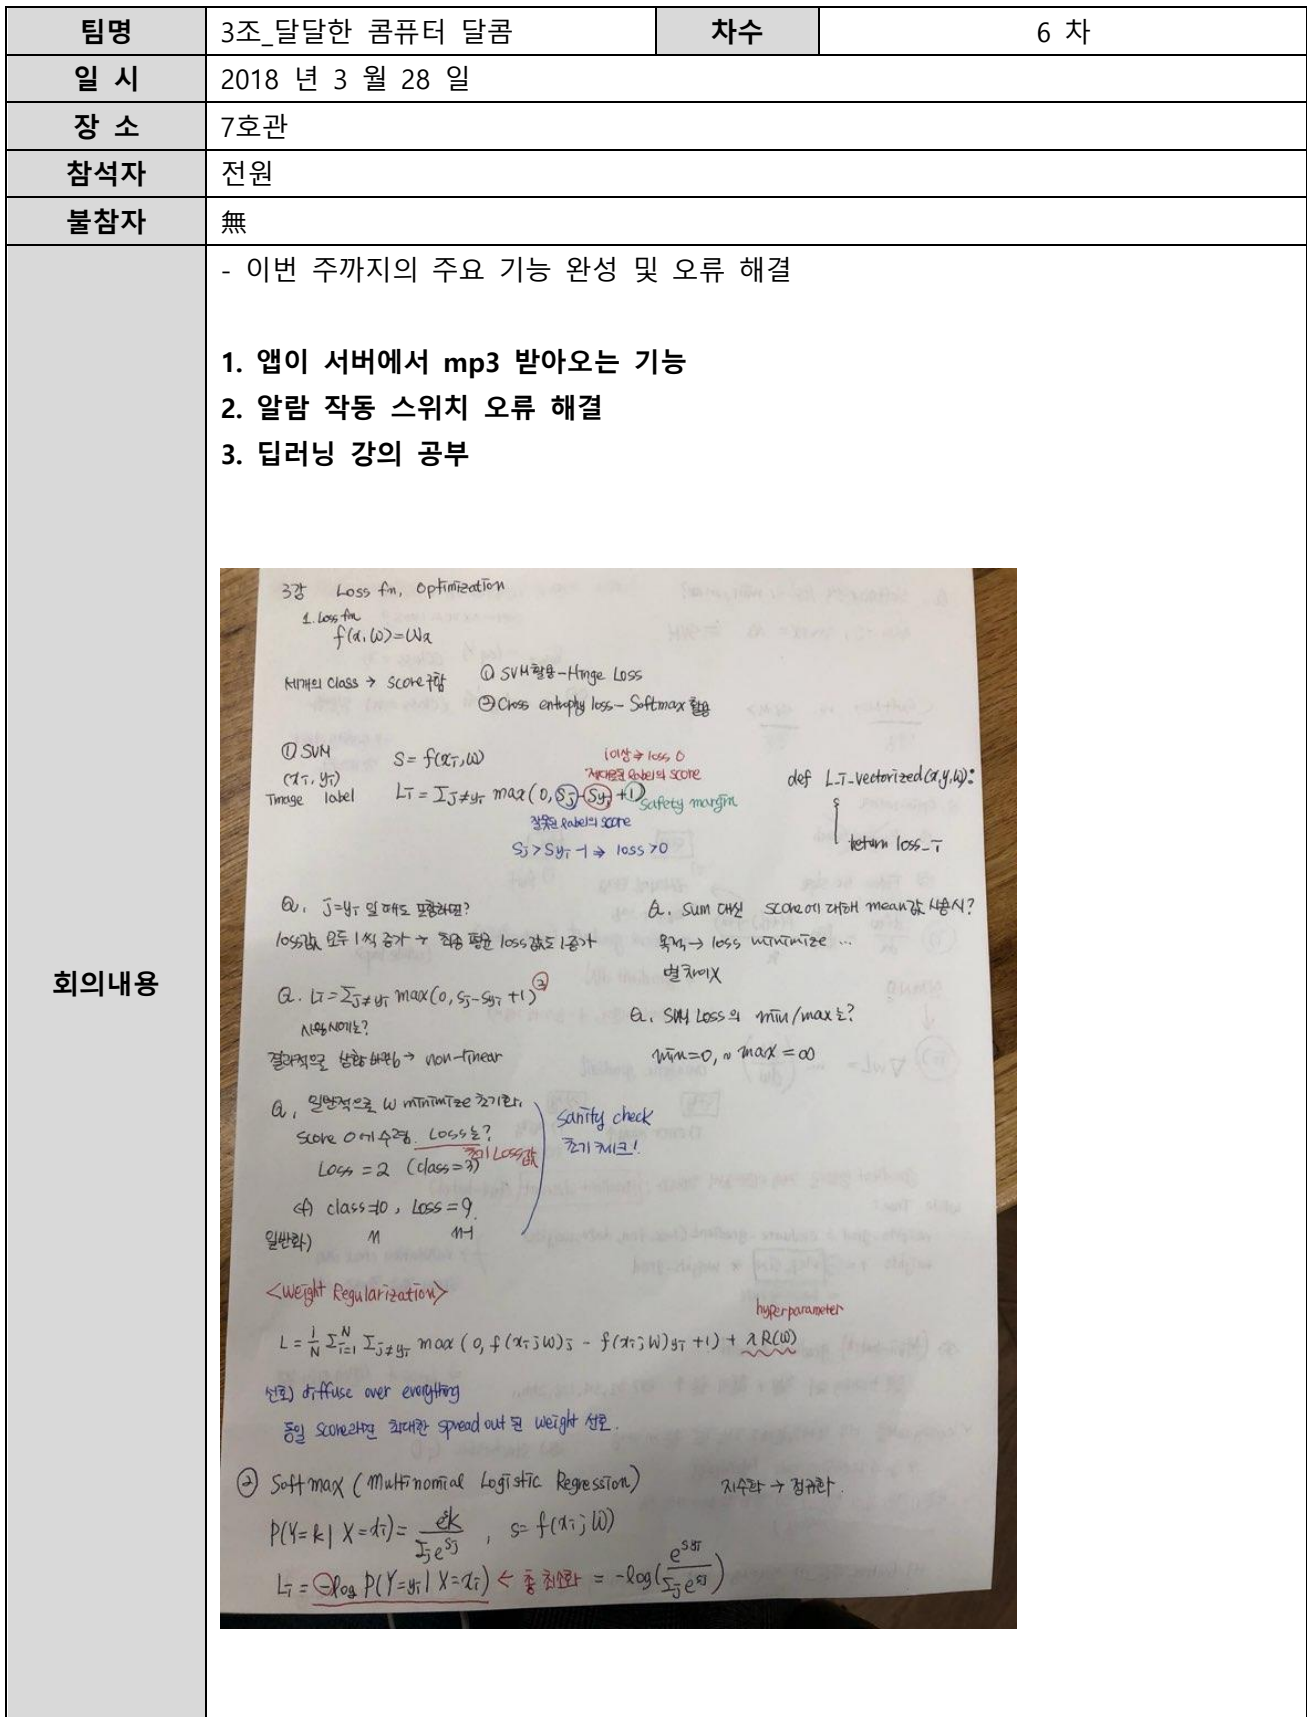 팀명 3조_달달한 콤퓨터 달콤 차수 6 차
일 시 2018 년 3 월 28 일
장 소 7호관
참석자 전원
불참자 無
회의내용
- 이번 주까지의 주요 기능 완성 및 오류 해결
1. 앱이 서버에서 mp3 받아오는 기능
2. 알람 작동 스위치 오류 해결
3. 딥러닝 강의 공부
3강 Loss fn, Optimization
1. Loss fn
f(x, W) = Wx
세개의 class → score 구함
① SVM 활용 - Hinge Loss
② Cross entropy loss - Softmax 활용
① SVM
(xi, yi)
Image label
S = f(xi, W)
1이상 → loss 0
제대로된 label의 score
Li = Σj≠yi max(0, Sj - Syi + 1)
safety margin
잘못된 label의 score
Sj > Syi - 1 → loss > 0
def L_i_vectorized(x, y, W):
return loss_i
Q. j=yi 일 때도 포함하면?
loss값 모두 1씩 증가 → 최종 평균 loss값도 1증가
Q. sum 대신 score에 대해 mean값 사용시?
목적 → loss minimize ...
별 차이 X
Q. Li = Σj≠yi max(0, Sj - Syi + 1)²
사용시에는?
결과적으로 → non-linear
Q. SVM Loss의 min/max는?
min=0, ~ max = ∞
Q. 일반적으로 W minimize 초기화,
score 0에 수렴. Loss는?
초기 Loss값
Loss = 2 (class=3)
cf) class=10, Loss = 9
일반화) n n-1
sanity check
초기 체크!
<Weight Regularization>
hyperparameter
L = 1/N Σi=1 N Σj≠yi max(0, f(xi; W)j - f(xi; W)yi + 1) + λR(W)
선호) diffuse over everything
동일 score라면 최대한 spread out 된 weight 선호.
② Softmax (Multinomial Logistic Regression)
지수화 → 정규화.
P(Y=k | X=xi) = esk / Σj esj , s = f(xi; W)
Li = -log P(Y=yi | X=xi) ← 최소화 = -log(esyi / Σj esj)